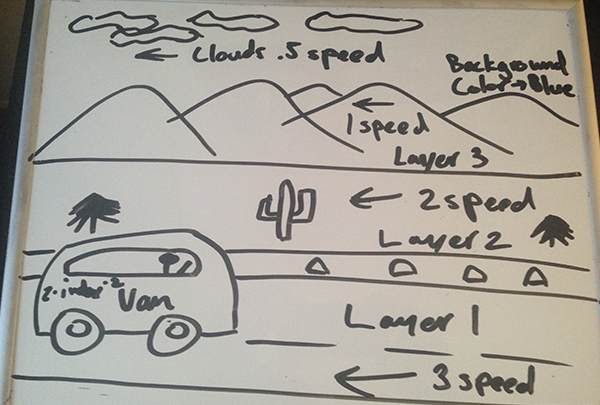 ← Clouds .5 speed
Background
Color → Blue
← 1 speed
Layer 3
← 2 speed
Layer 2
z-index: 2
Van
Layer 1
← 3 speed